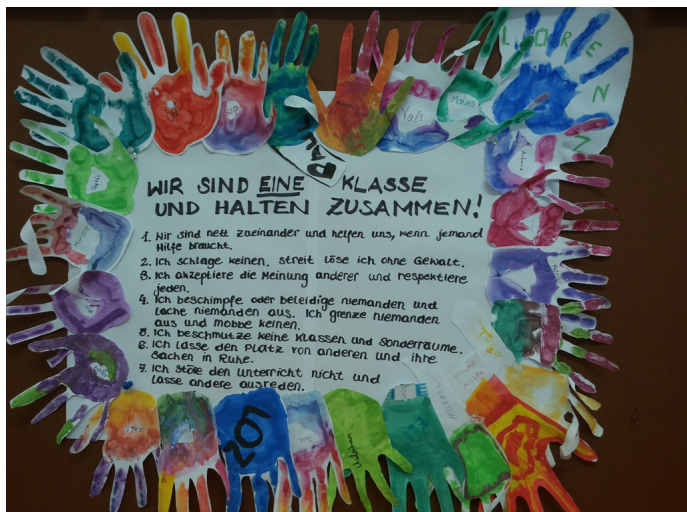 LOREN
PAUL
Vali
WIR SIND EINE KLASSE
UND HALTEN ZUSAMMEN!
1. Wir sind nett zueinander und helfen uns, wenn jemand
Hilfe braucht.
2. Ich schlage keinen. Streit löse ich ohne Gewalt.
3. Ich akzeptiere die Meinung anderer und respektiere
jeden.
4. Ich beschimpfe oder beleidige niemanden und
lache niemanden aus. Ich grenze niemanden
aus und mobbe keinen.
5. Ich beschmutze keine Klassen und Sonderräume.
6. Ich lasse den Platz von anderen und ihre
Sachen in Ruhe.
7. Ich störe den Unterricht nicht und
lasse andere ausreden.
MICHAEL